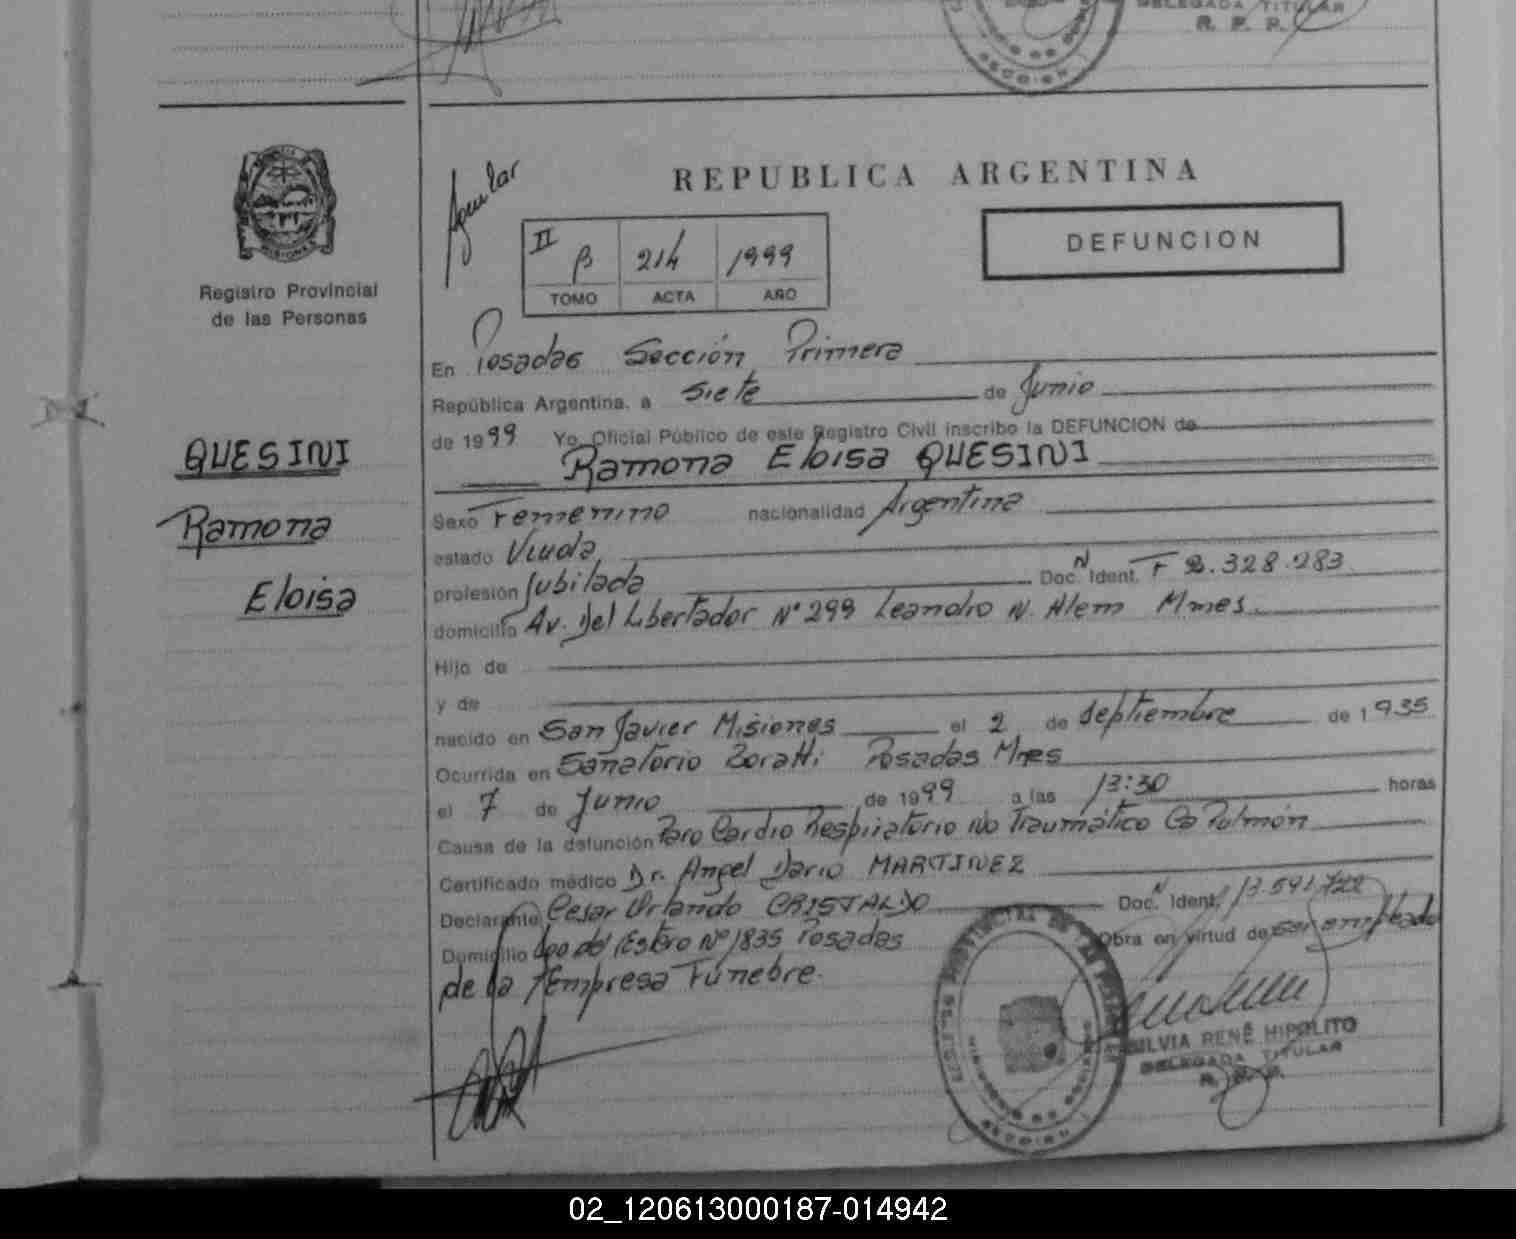 DELEGADA TITULAR
R. P. P.
Registro Provincial
de las Personas
QUESINI
Ramona
Eloisa
Aguilar
REPUBLICA ARGENTINA
DEFUNCION
II B 214 1999
TOMO ACTA AÑO
En Posadas Sección Primera
República Argentina, a siete de Junio
de 1999 Yo, Oficial Público de este Registro Civil inscribo la DEFUNCION de
Ramona Eloisa QUESINI
Sexo Femenino nacionalidad Argentina
estado Viuda
profesión Jubilada Doc. N Ident. F 2.328.283
domicilio Av. Del Libertador Nº 299 Leandro N. Alem Mnes.
Hijo de
y de
nacido en San Javier Misiones el 2 de Septiembre de 1935
Ocurrida en Sanatorio Boratti Posadas Mnes
el 7 de Junio de 1999 a las 13:30 horas
Causa de la defunción Paro Cardio Respiratorio No Traumático Ca Pulmón
Certificado médico Dr. Angel Dario MARTINEZ
Declarante Cesar Orlando CRISTALDO Doc. N Ident. 13.591.722
Domicilio Sgo del Estero Nº 1835 Posadas Obra en virtud de ser empleado
de la Empresa Fúnebre.
SILVIA RENÉ HIPOLITO
DELEGADA TITULAR
R. P. P.
02_120613000187-014942